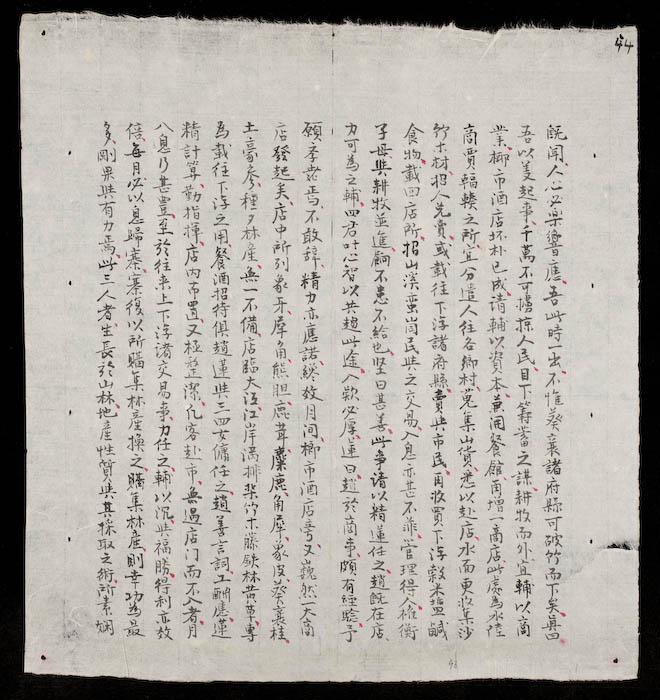 44
既聞人心必樂響應吾此時一出不惟葵襄諸府縣可破竹而下矣真曰
吾以義起事千萬不可擄掠人民目下籌蓄之謀耕牧而外宜輔以商
業柳市酒店坯朴已成請輔以資本兼開餐館再增一商店此處為水陸
商賈輻輳之所宜分遣人往各鄉村蒐集山貨悉以赴店水面更收集沙
竹木材招人先賣或載往下浮諸府縣賣與市民再收買下浮穀米塩鹹
食物載回店所招山溪蛮峝民與之交易入息亦甚不菲管理得人權衡
子母與耕牧並進餉不患不給也堅曰甚善此爭請以精蓮任之趙既在店
力可為之輔四君叶心智以共趙此途入款必厚蓮曰趙於商事頗有經驗予
願奉教焉不敢辭精力亦應諾終效月间柳市酒店号又巍然一大商
店發起矣店中所列象牙犀角熊胆鹿茸麋鹿角犀象皮葵襄桂
土豪參種夕林産無一不備店臨大江江岸滿排柴竹木藤鉄林苦草專
為載往下浮之用餐酒招待俱趙蓮與三四女傭任之趙善言詞工酬應蓮
精計算勤指揮店内布置又極整潔凢客赴市無過店门而不入者月
入息乃甚豊至於往来上下浮諸交易事力任之輔以沉與福勝得利亦效
倍每月必以息歸寨寨復以所購集林産換之購集林産則幸功為最
多剛果與有力焉此三人者生長於山林地産性質與其採取之術所素嫻